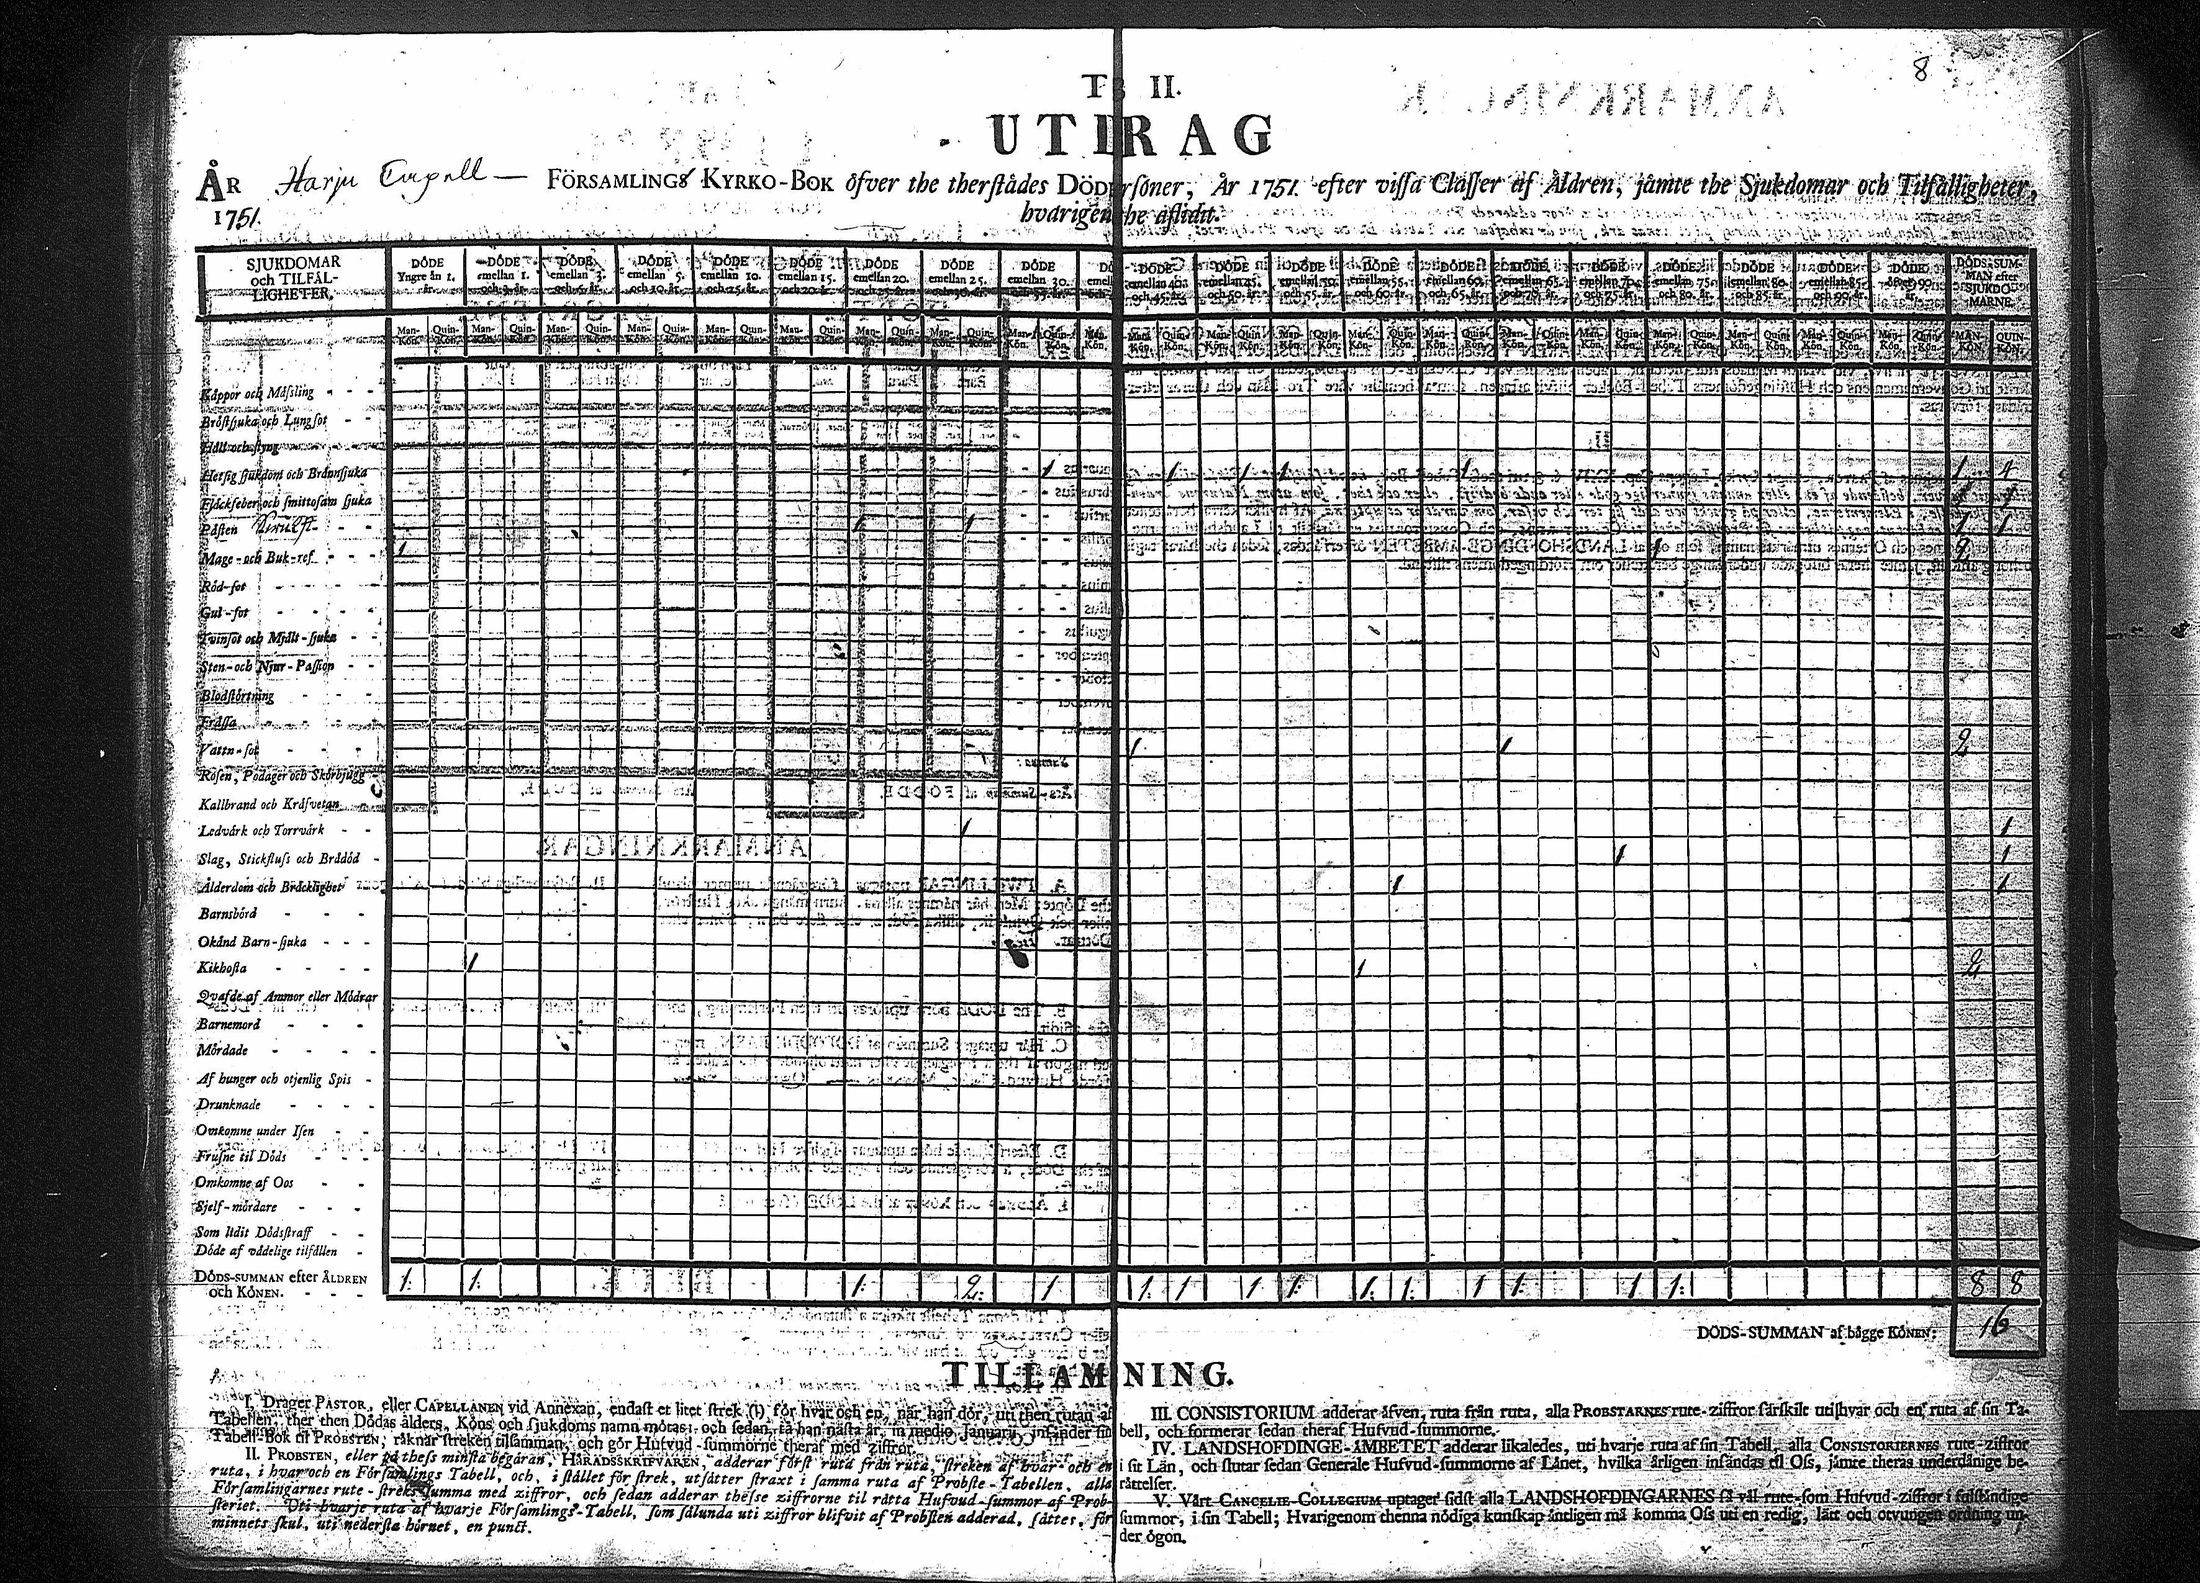 8
II.
UTDRAG
ÅR Harju Capell — FÖRSAMLINGS KYRKO-BOK öfver the therstådes DÖDE Personer, År 1751. efter vissa Classer af Åldren, jämte the Sjukdomar och Tilfälligheter,
1751. hvarigenom the aflidit.
SJUKDOMAR och TILFÄL-LIGHETER.
DÖDE Yngre än 1. år.
DÖDE emellan 1. och 3. år.
DÖDE emellan 3. och 5. år.
DÖDE emellan 5. och 10. år.
DÖDE emellan 10. och 15. år.
DÖDE emellan 15. och 20. år.
DÖDE emellan 20. och 25. år.
DÖDE emellan 25. och 30. år.
DÖDE emellan 30.
DÖDE emellan 40. och 45. år.
DÖDE emellan 45. och 50. år.
DÖDE emellan 50. och 55. år.
DÖDE emellan 55. och 60. år.
DÖDE emellan 60. och 65. år.
DÖDE emellan 65. och 70. år.
DÖDE emellan 70. och 75. år.
DÖDE emellan 75. och 80. år.
DÖDE emellan 80. och 85. år.
DÖDE emellan 85. och 90. år.
DÖDE öfver 90. år.
DÖDS-SUM-MAN efter SJUKDO-MARNE.
Man-Kön. Quin-Kön. Man-Kön. Quin-Kön. Man-Kön. Quin-Kön. Man-Kön. Quin-Kön. Man-Kön. Quin-Kön. Man-Kön. Quin-Kön. Man-Kön. Quin-Kön. Man-Kön. Quin-Kön. Man-Kön. Quin-Kön. Man-Kön.
Man-Kön. Quin-Kön. Man-Kön. Quin-Kön. Man-Kön. Quin-Kön. Man-Kön. Quin-Kön. Man-Kön. Quin-Kön. Man-Kön. Quin-Kön. Man-Kön. Quin-Kön. Man-Kön. Quin-Kön. Man-Kön. Quin-Kön. Man-Kön. Quin-Kön. Man-Kön. Quin-Kön. MAN-KÖN. QUIN-KÖN.
Koppor och Mässling - - -
Bröstsjuka och Lungsot - -
Håll och styng
Hetsig sjukdom och Brännsjuka 1 1 1 1 1 1 4
Fläckfeber och smittosam sjuka
Påsten - - 1 1 1 1
Mage- och Buk-ref - - - - 1 1 2
Röd-sot - - - -
Gul-sot - - - -
Tvinsot och Mjält-sjuka - -
Sten- och Njur-Passion - -
Blodstörtning - - -
Frässa - - - -
Vattn-sot - - - 1 1 2
Rosen, Podager och Skörbjugg
Kallbrand och Kräfvetan
Ledvärk och Torrvärk - - 1 1
Slag, Stickfluss och Brådöd - 1 1
Ålderdom och Bräcklighet 1 1
Barnsbörd - - - -
Okänd Barn-sjuka - - -
Kikhosta - - - - 1 1 2
Qvafde af Ammor eller Mödrar
Barnemord - - - -
Mördade - - - -
Af hunger och otjenlig Spis -
Drunknade - - - -
Omkomne under Isen - -
Frusne til Döds - - -
Omkomne af Oos - -
Sjelf-mördare - - -
Som lidit Dödsstraff - -
Döde af vådelige tilfällen -
DÖDS-SUMMAN efter ÅLDREN och KÖNEN. - - - 1. 1. 1. 2. 1 1. 1 1 1. 1. 1. 1 1. 1 1. 8 8
DÖDS-SUMMAN af bägge KÖNEN: 16
TILLÄMNING.
I. Drager PASTOR, eller CAPELLANEN vid Annexan, endast et litet strek (1) för hvar och en, när han dör, uti then rutan af
Tabellen, ther then Dödas ålders, Köns och sjukdoms namn mötas; och sedan, tå han nästa år, in medio Januarii, insänder sin
Tabell-Bok til PROBSTEN, räknar streken tilsamman, och gör Hufvud-summorne theraf med ziffror.
II. PROBSTEN, eller på thess minsta begäran, HÄRADSSKRIFVAREN, adderar först ruta från ruta, streken af hvar och en
ruta, i hvar och en Församlings Tabell, och, i stället för strek, utsätter straxt i samma ruta af Probste-Tabellen, alla
Församlingarnes rute-streks-summa med ziffror, och sedan adderar thesse ziffrorne til rätta Hufvud-summor af Prob-
steriet. Uti hvarje ruta af hvarje Församlings-Tabell, som sålunda uti ziffror blifvit af Probsten adderad, sättes, för
minnets skul, uti nedersta hörnet, en punct.
III. CONSISTORIUM adderar äfven, ruta från ruta, alla PROBSTARNES rute-ziffror särskilt uti hvar och en ruta af sin Ta-
bell, och formerar sedan theraf Hufvud-summorne.
IV. LANDSHÖFDINGE-ÄMBETET adderar likaledes, uti hvarje ruta af sin Tabell, alla CONSISTORIERNES rute-ziffror
i sit Län, och slutar sedan Generale Hufvud-summorne af Länet, hvilka årligen insändas til Oss, jämte theras underdånige be-
rättelser.
V. Vårt CANCELIE-COLLEGIUM uptager sidst alla LANDSHÖFDINGARNES så väl rute-som Hufvud-ziffror i fulständige
summor, i sin Tabell; Hvarigenom thenna nödiga kunskap äntligen må komma Oss uti en redig, lätt och otvungen ordning un-
der ögon.